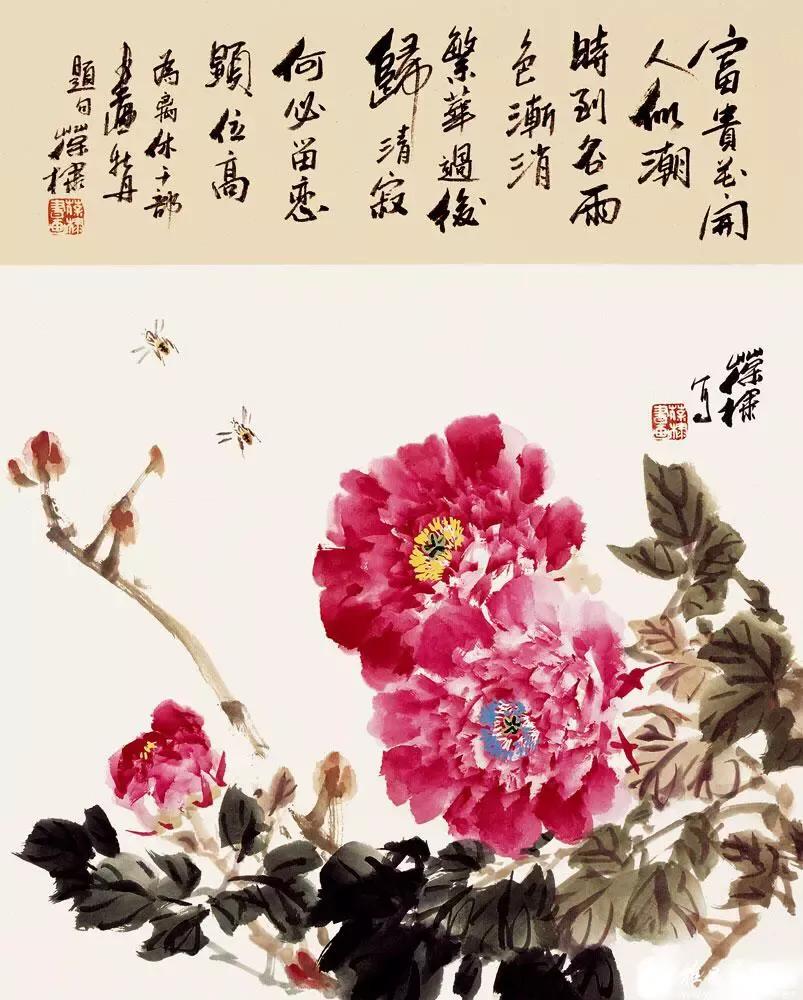 富貴花開
人似潮
時到谷雨
色漸消
繁華過後
歸清寂
何必留恋
顯位高
為离休干部
牡丹
題句
写